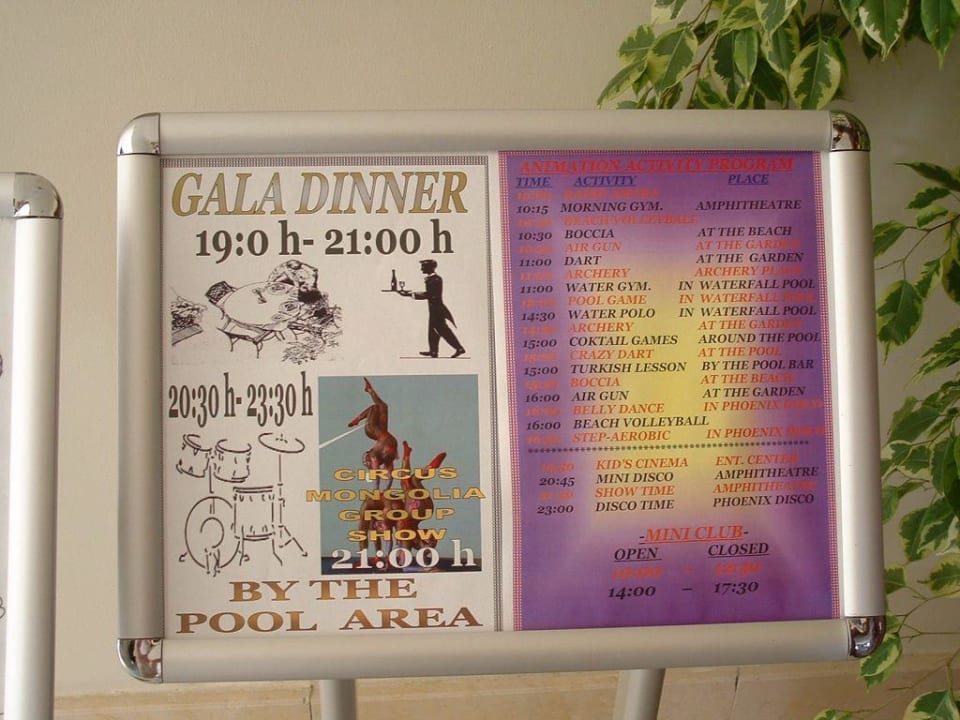 GALA DINNER
19:0 h- 21:00 h
20:30 h- 23:30 h
CIRCUS
MONGOLIA
GROUP
SHOW
21:00 h
BY THE
POOL AREA
ANIMATION ACTIVITY PROGRAM
TIME ACTIVITY PLACE
10:15 MORNING GYM. AMPHITHEATRE
BEACH VOLLEYBALL
10:30 BOCCIA AT THE BEACH
AIR GUN AT THE GARDEN
11:00 DART AT THE GARDEN
ARCHERY ARCHERY PLACE
11:00 WATER GYM. IN WATERFALL POOL
POOL GAME IN WATERFALL POOL
14:30 WATER POLO IN WATERFALL POOL
ARCHERY AT THE GARDEN
15:00 COKTAIL GAMES AROUND THE POOL
CRAZY DART AT THE POOL
15:00 TURKISH LESSON BY THE POOL BAR
BOCCIA AT THE BEACH
16:00 AIR GUN AT THE GARDEN
BELLY DANCE IN PHOENIX DISCO
16:00 BEACH VOLLEYBALL
STEP-AEROBIC IN PHOENIX DISCO
KID'S CINEMA ENT. CENTER
20:45 MINI DISCO AMPHITHEATRE
SHOW TIME AMPHITHEATRE
23:00 DISCO TIME PHOENIX DISCO
-MINI CLUB-
OPEN CLOSED
14:00 – 17:30